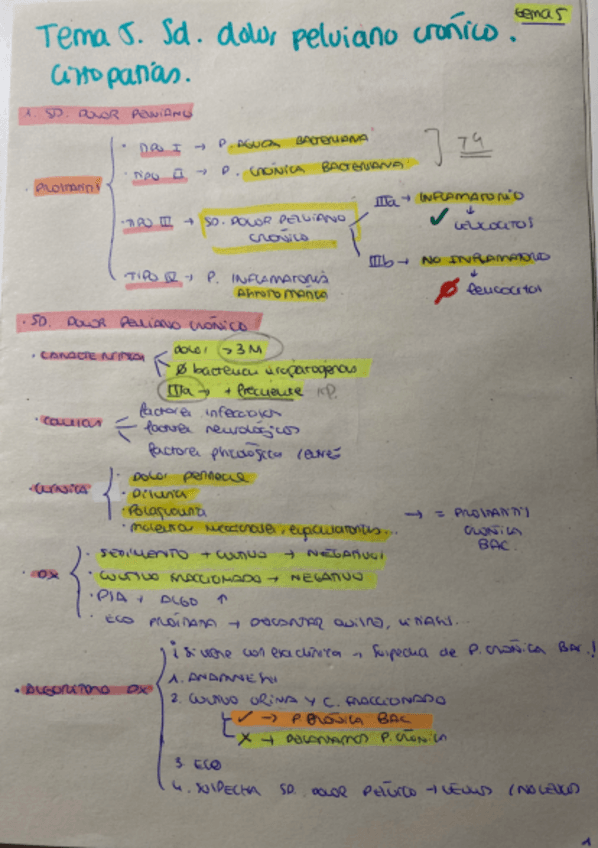 tema 5
Tema 5. Sd. dolor pelviano crónico.
Cistopatías.
1. SD. DOLOR PELVIANO
PROSTATITIS
· TIPO I → P. AGUDA BACTERIANA
· TIPO II → P. CRÓNICA BACTERIANA
T4
· TIPO III → SD. DOLOR PELVIANO CRÓNICO
IIIa → INFLAMATORIO
✓ LEUCOCITOS
IIIb → NO INFLAMATORIO
Ø leucocitos
· TIPO IV → P. INFLAMATORIA
ASINTOMÁTICA
· SD. DOLOR PELVIANO CRÓNICO
· CARACTERÍSTICAS
dolor > 3 M
Ø bacterias uropatógenas
IIIa → + frecuente
· CAUSAS
factores infecciosos
factores neurológicos
factores psicológicos (estrés
· CLÍNICA
· DOLOR perineal
· Disuria
· Polaquiuria
· molestias miccionales, eyaculatorias...
→ = PROSTATITIS
CRÓNICA
BAC.
· DX
· SEDIMENTO + CULTIVO → NEGATIVOS
· CULTIVO FRACCIONADO → NEGATIVO
· PSA + ALGO ↑
· ECO PRÓSTATA → DESCARTAR QUISTES, LITIASIS...
· ALGORITMO DX
¡Si viene con esa clínica → Sospecha de P. CRÓNICA BAC.!
1. ANAMNESIS
2. CULTIVO ORINA Y C. FRACCIONADO
✓ → P. CRÓNICA BAC
X → DESCARTAMOS P. CRÓNICA
3. ECO
4. SOSPECHA SD. DOLOR PÉLVICO →
1